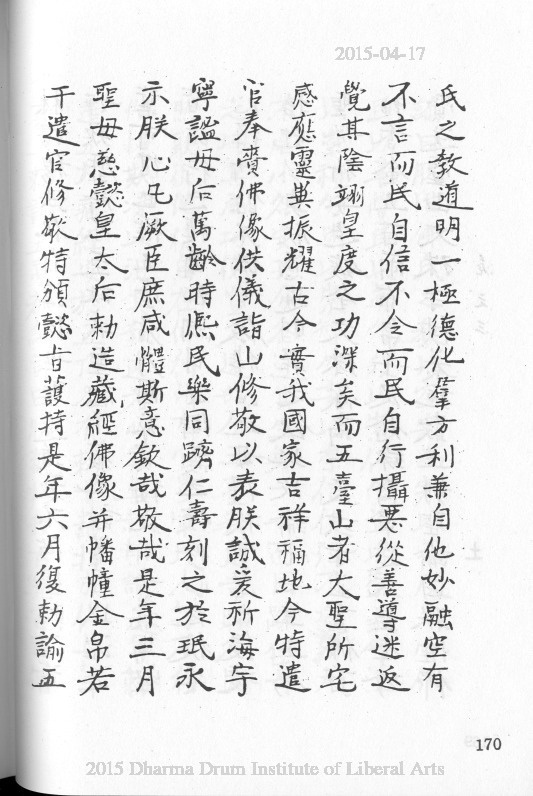 2015-04-17
氏之教道明一極德化羣方利兼自他妙融空有
不言而民自信不令而民自行攝惡從善導迷返
覺其陰翊皇度之功深矣而五臺山者大聖所宅
感應靈異振耀古今實我國家吉祥福地今特遣
官奉賫佛像供儀詣山修敬以表朕誠爰祈海宇
寧謐母后萬齡時熈民樂同躋仁壽刻之於珉永
示朕心凢厥臣庶咸體斯意欽哉敬哉是年三月
聖母慈懿皇太后勅造藏經佛像并幡幢金帛若
干遣官修敬特頒懿旨護持是年六月復勅諭五
170
2015 Dharma Drum Institute of Liberal Arts